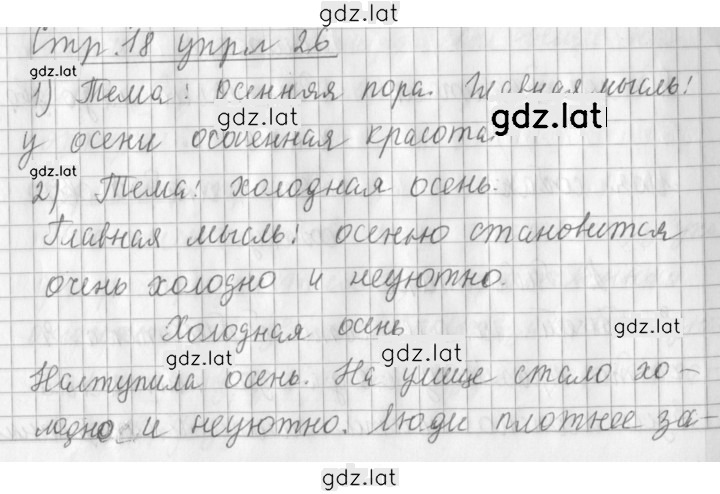 gdz.lat
Стр. 18 упрл 26
gdz.lat
1) Тема: осенняя пора. Главная мысль:
gdz.lat
у осени особенная красота.
gdz.lat
2) Тема: холодная осень.
Главная мысль: осенью становится
очень холодно и неуютно.
Холодная осень
gdz.lat
gdz.lat
gdz.lat
Наступила осень. На улице стало хо-
лодно и неуютно. Люди плотнее за-
gdz.lat